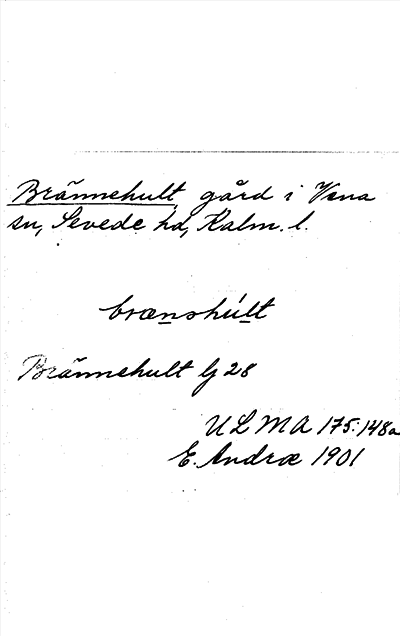 Brännehult, gård i Vena
sn, Sevede hd, Kalm. l.
brænshúlt
Brännehult G 28
ULMA 175:148a
E. Andræ 1901